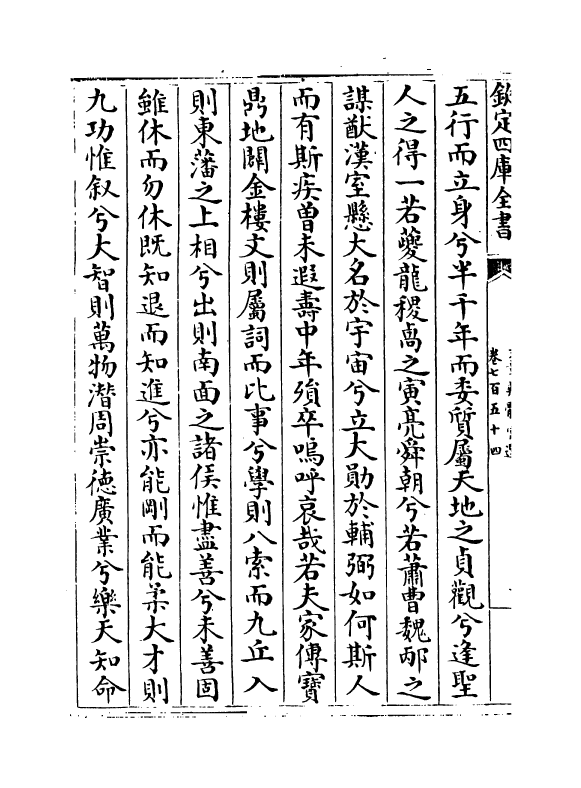 欽定四庫全書
卷七百五十四
五行而立身兮半千年而委質屬天地之貞觀兮逢聖
人之得一若夔龍稷卨之寅亮舜朝兮若蕭曹魏邴之
謀猷漢室懸大名於宇宙兮立大勛於輔弼如何斯人
而有斯疾曽未遐壽中年殞卒嗚呼哀哉若夫家傳寶
鼎地闢金樓文則屬詞而比事兮學則八索而九丘入
則東藩之上相兮出則南面之諸侯惟盡善兮未善固
雖休而勿休既知退而知進兮亦能剛而能柔大才則
九功惟叙兮大智則萬物潛周崇德廣業兮樂天知命